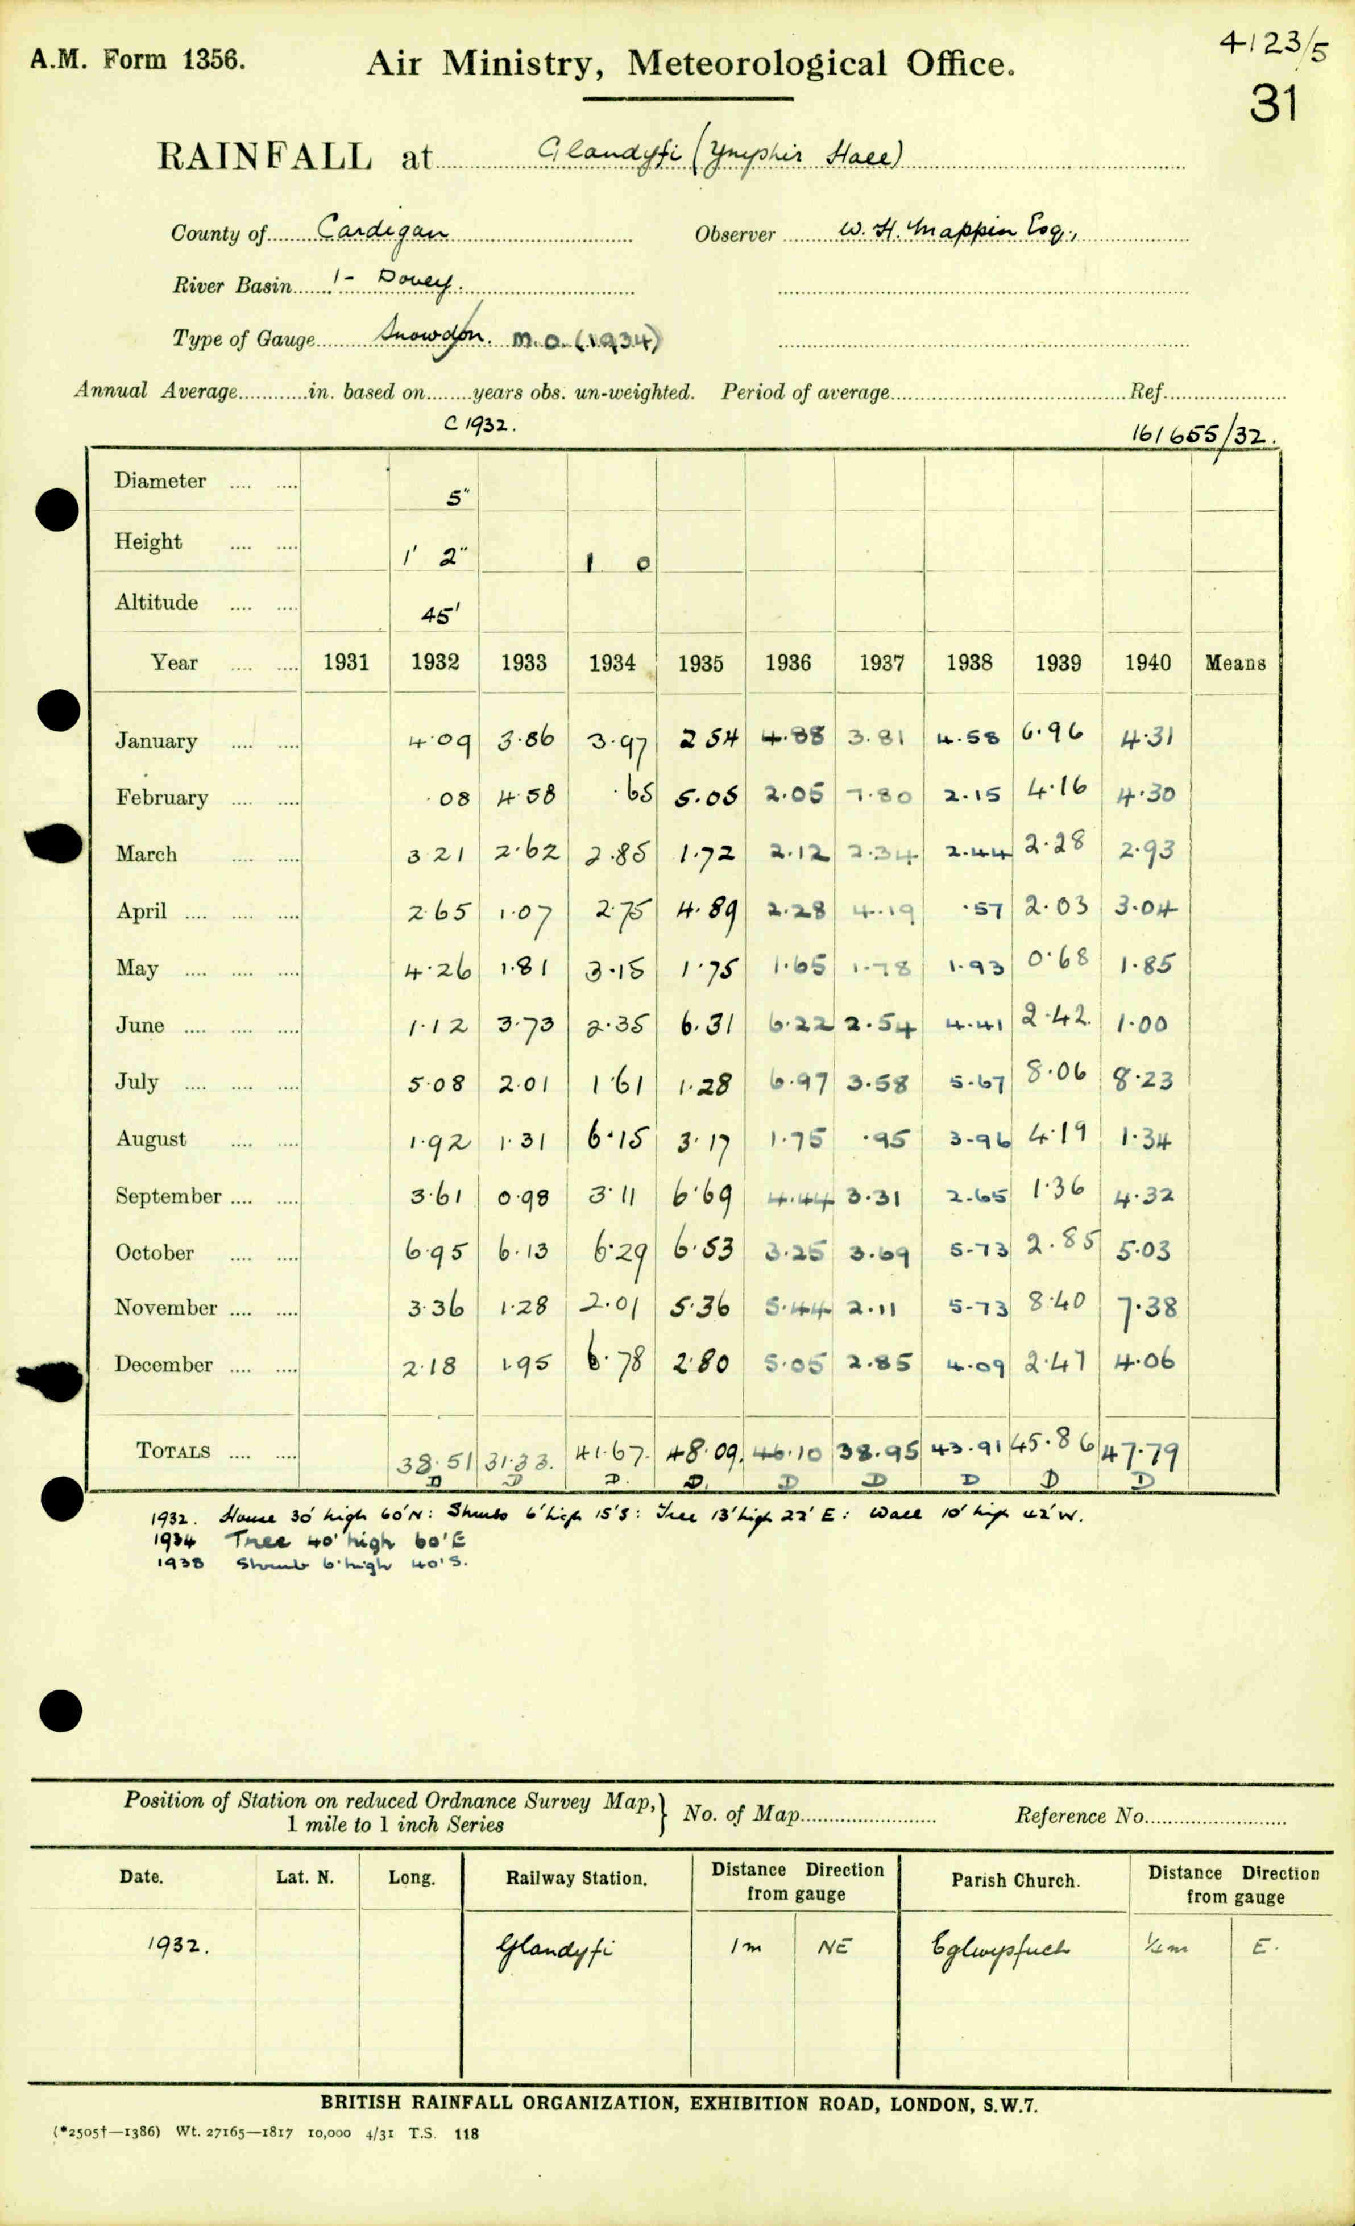 4123/5
A.M. Form 1356. Air Ministry, Meteorological Office.
31
RAINFALL at Glandyfi (Ynyshir Hall)
County of Cardigan Observer W. H. Mappin Esq.,
River Basin 1- Dovey.
Type of Gauge Snowdon. M.O. (1934)
Annual Average in. based on years obs. un-weighted. Period of average Ref.
C 1932. 161655/32.
Diameter 5"
Height 1' 2" 1 0
Altitude 45'
Year 1931 1932 1933 1934 1935 1936 1937 1938 1939 1940 Means
January 4.09 3.86 3.97 2.54 4.88 3.81 4.58 6.96 4.31
February .08 4.58 .65 5.05 2.05 7.80 2.15 4.16 4.30
March 3.21 2.62 2.85 1.72 2.12 2.34 2.44 2.28 2.93
April 2.65 1.07 2.75 4.89 2.28 4.19 .57 2.03 3.04
May 4.26 1.81 3.15 1.75 1.65 1.78 1.93 0.68 1.85
June 1.12 3.73 2.35 6.31 6.22 2.54 4.41 2.42 1.00
July 5.08 2.01 1.61 1.28 6.97 3.58 5.67 8.06 8.23
August 1.92 1.31 6.15 3.17 1.75 .95 3.96 4.19 1.34
September 3.61 0.98 3.11 6.69 4.44 3.31 2.65 1.36 4.32
October 6.95 6.13 6.29 6.53 3.25 3.69 5.73 2.85 5.03
November 3.36 1.28 2.01 5.36 5.44 2.11 5.73 8.40 7.38
December 2.18 1.95 6.78 2.80 5.05 2.85 4.09 2.47 4.06
TOTALS 38.51 31.33. 41.67. 48.09. 46.10 38.95 43.91 45.86 47.79
D D D. D. D D D D D
1932. House 30' high 60'N: Shrubs 6' high 15'S: Tree 13' high 22' E: Wall 10' high 42'W.
1934 Tree 40' high 60'E
1938 Shrub 6' high 40'S.
Position of Station on reduced Ordnance Survey Map, 1 mile to 1 inch Series } No. of Map Reference No.
Date. Lat. N. Long. Railway Station. Distance Direction from gauge Parish Church. Distance Direction from gauge
1932. Glandyfi 1m NE Eglwysfach ¼m E.
BRITISH RAINFALL ORGANIZATION, EXHIBITION ROAD, LONDON, S.W.7.
(*2505†—1386) Wt. 27165—1817 10,000 4/31 T.S. 118